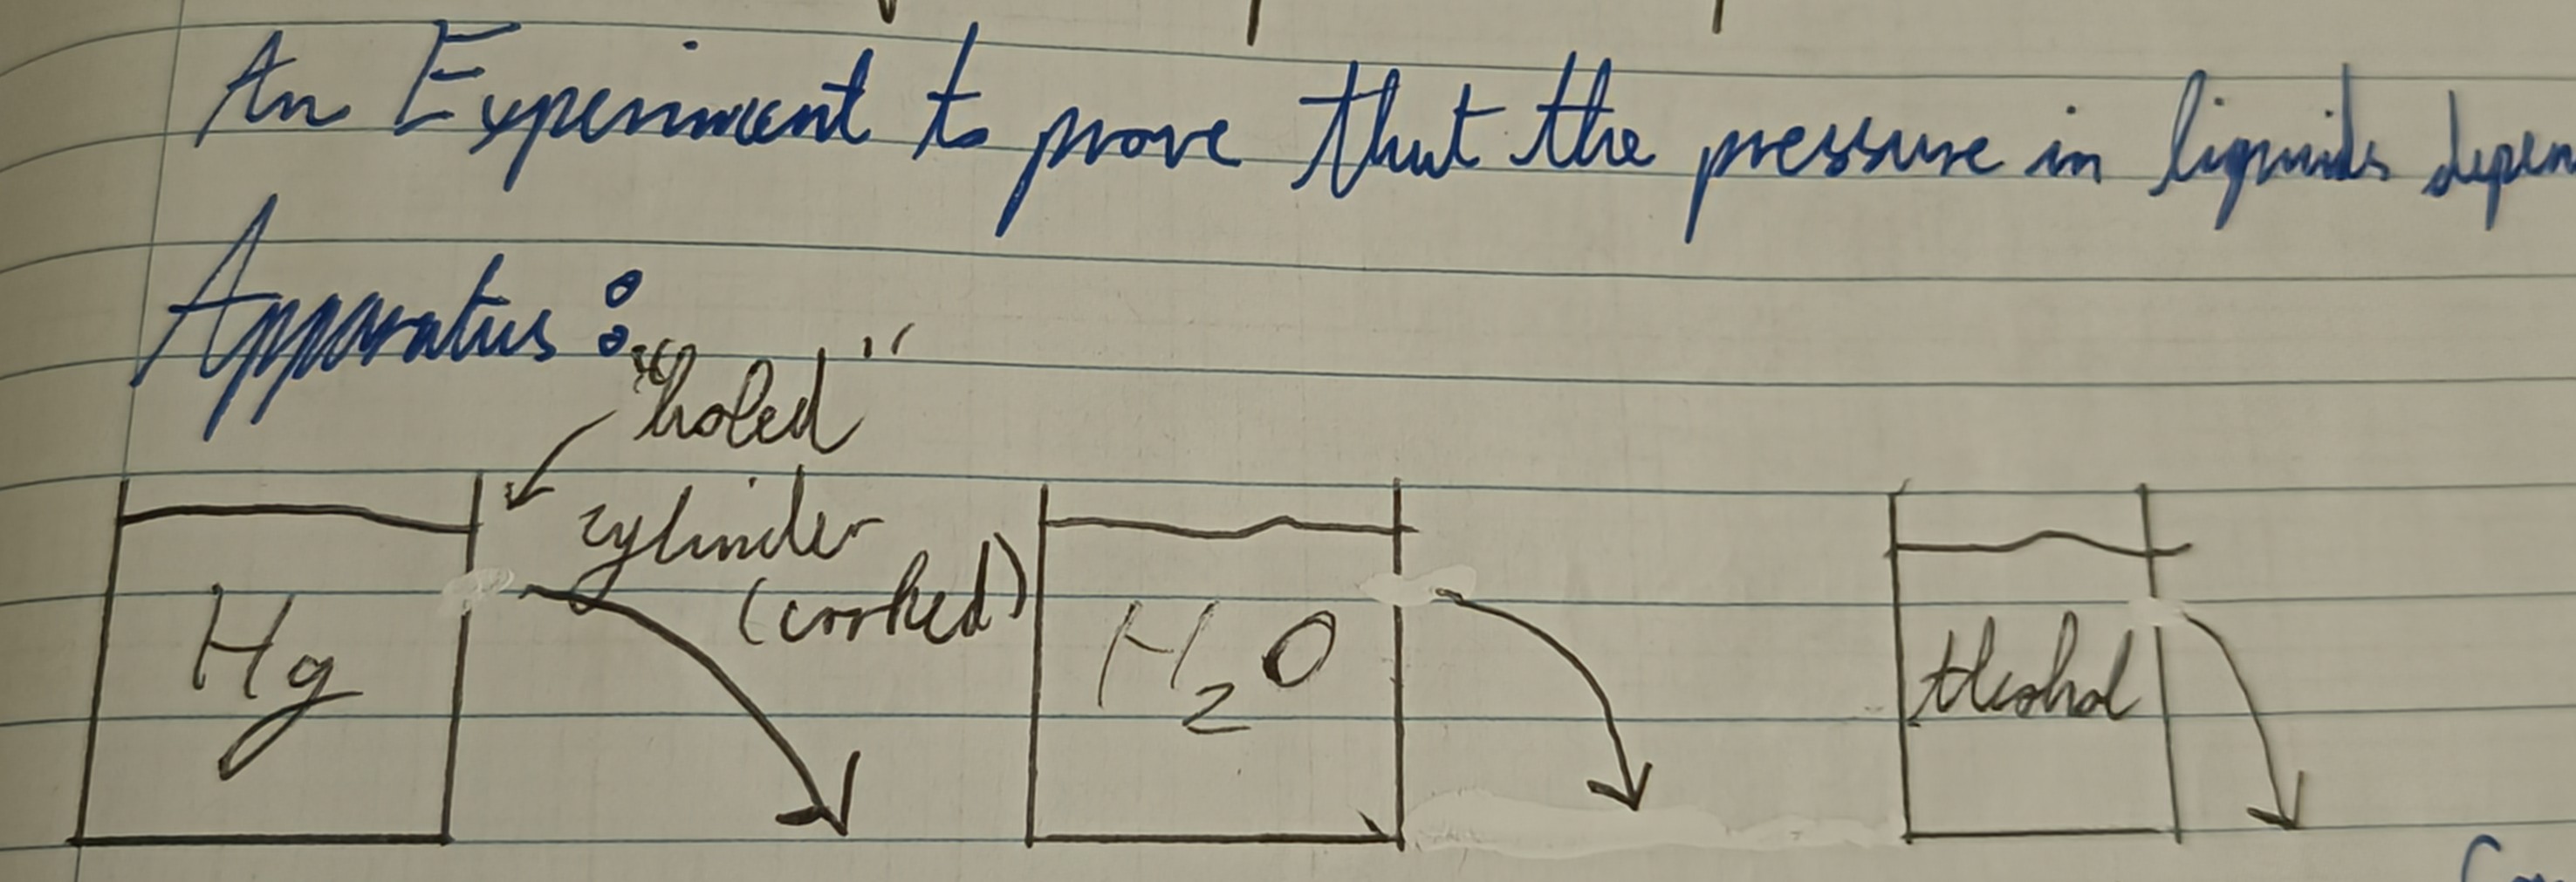 An Experiment to prove that the pressure in liquids depen
Apparatus :
"holed"
cylinder
(corked)
Hg
H₂O
Alcohol